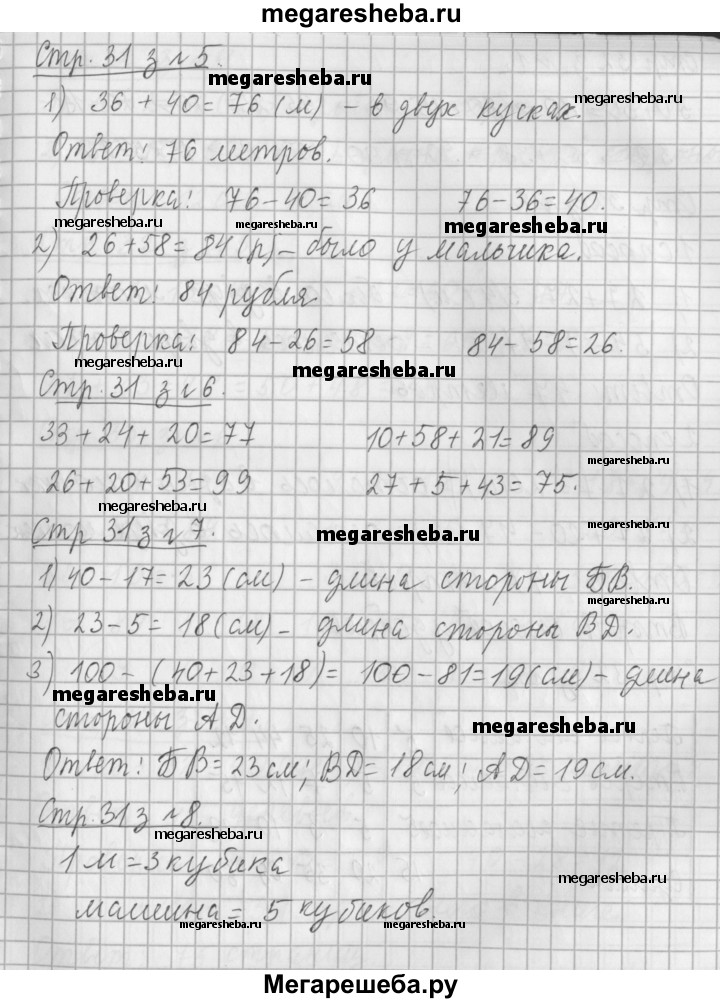 megaresheba.ru
Стр. 31 з №5.
megaresheba.ru
1) 36 + 40 = 76 (м) - в двух кусках.
megaresheba.ru
Ответ: 76 метров.
Проверка: 76-40=36 76-36=40.
megaresheba.ru megaresheba.ru
2) 26+58=84(р)-было у мальчика.
Ответ: 84 рубля
Проверка: 84-26=58 84-58=26.
megaresheba.ru megaresheba.ru
Стр. 31 з №6.
33+24+20=77 10+58+21=89
megaresheba.ru
26+20+53=99 27+5+43=75.
Стр 31 з №7. megaresheba.ru megaresheba.ru
1) 40-17=23(см) - длина стороны БВ.
megaresheba.ru
2) 23-5=18(см)- длина стороны ВД.
3) 100-(40+23+18)= 100-81=19(см)- длина
megaresheba.ru
стороны АД. megaresheba.ru
Ответ: БВ=23см; ВД=18см; АД=19см.
Стр. 31 з №8.
megaresheba.ru
1м=3кубика
megaresheba.ru
машина= 5 кубиков.
megaresheba.ru
Мегарешеба.ру